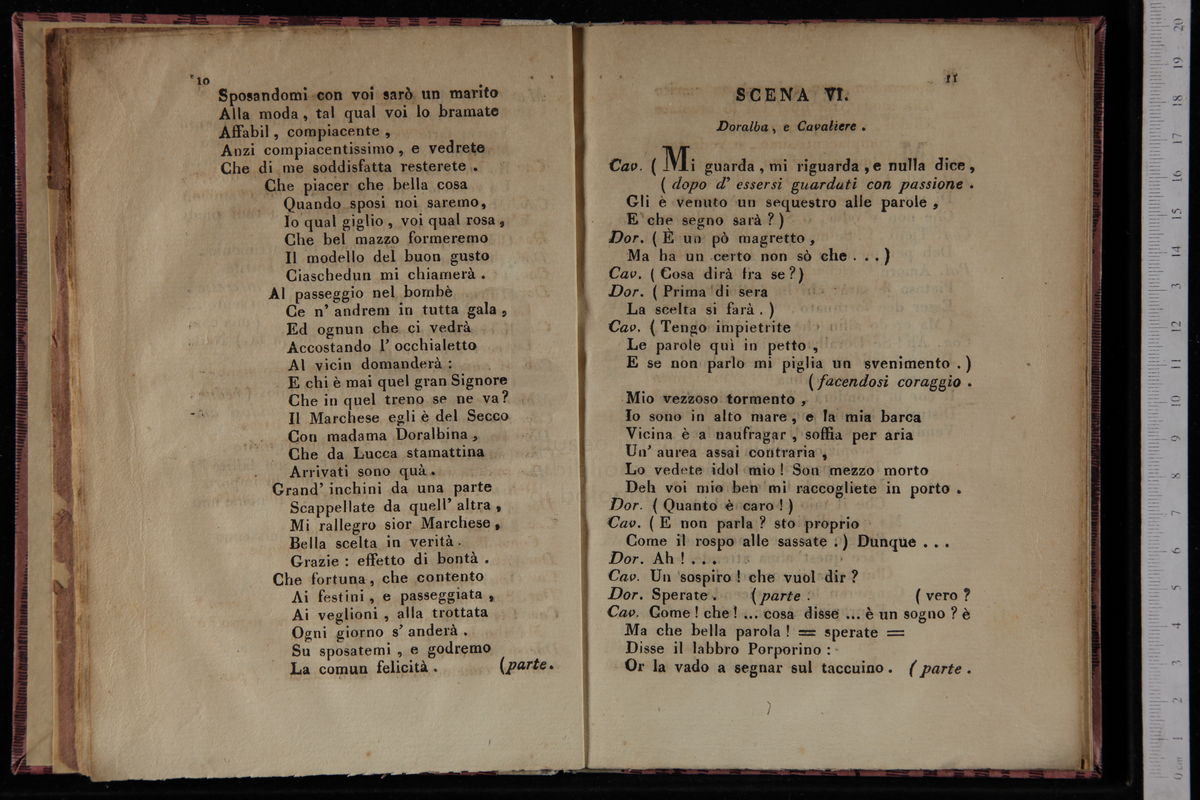 10
Sposandomi con voi sarò un marito
Alla moda , tal qual voi lo bramate
Affabil , compiacente ,
Anzi compiacentissimo , e vedrete
Che di me soddisfatta resterete .
Che piacer che bella cosa
Quando sposi noi saremo,
Io qual giglio , voi qual rosa ,
Che bel mazzo formeremo
Il modello del buon gusto
Ciaschedun mi chiamerà .
Al passeggio nel bombè
Ce n' andrem in tutta gala ,
Ed ognun che ci vedrà
Accostando l' occhialetto
Al vicin domanderà :
E chi è mai quel gran Signore
Che in quel treno se ne va?
Il Marchese egli è del Secco
Con madama Doralbina ,
Che da Lucca stamattina
Arrivati sono quà .
Grand' inchini da una parte
Scappellate da quell' altra ,
Mi rallegro sior Marchese ,
Bella scelta in verità .
Grazie : effetto di bontà .
Che fortuna , che contento
Ai festini , e passeggiata ,
Ai veglioni , alla trottata
Ogni giorno s' anderà .
Su sposatemi , e godremo
La comun felicità . (parte.
11
SCENA VI.
Doralba , e Cavaliere .
Cav. ( Mi guarda , mi riguarda , e nulla dice ,
( dopo d' essersi guardati con passione .
Gli è venuto un sequestro alle parole ,
E che segno sarà ? )
Dor. ( È un pò magretto ,
Ma ha un certo non sò che . . . )
Cav. ( Cosa dirà fra se ? )
Dor. ( Prima di sera
La scelta si farà . )
Cav. ( Tengo impietrite
Le parole quì in petto ,
E se non parlo mi piglia un svenimento . )
( facendosi coraggio .
Mio vezzoso tormento ,
Io sono in alto mare , e la mia barca
Vicina è a naufragar , soffia per aria
Un' aurea assai contraria ,
Lo vedete idol mio ! Son mezzo morto
Deh voi mio ben mi raccogliete in porto .
Dor. ( Quanto è caro ! )
Cav. ( E non parla ? sto proprio
Come il rospo alle sassate . ) Dunque . . .
Dor. Ah ! . . .
Cav. Un sospiro ! che vuol dir ?
Dor. Sperate . (parte . ( vero ?
Cav. Come ! che ! ... cosa disse ... è un sogno ? è
Ma che bella parola ! = sperate =
Disse il labbro Porporino :
Or la vado a segnar sul taccuino . ( parte .
0 cm 1 2 3 4 5 6 7 8 9 10 11 12 13 14 15 16 17 18 19 20